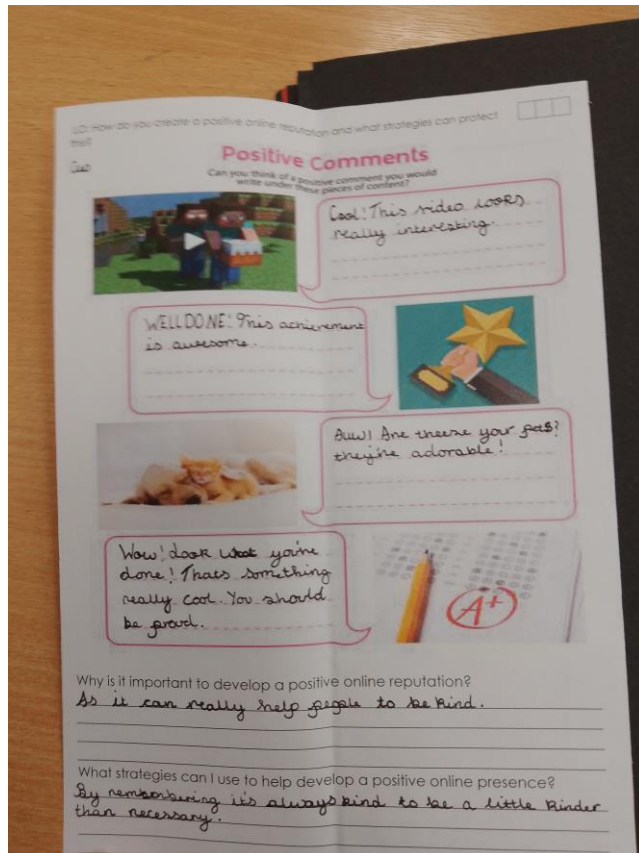 LO: How do you create a positive online reputation and what strategies can protect
this?
Positive Comments
Can you think of a positive comment you would
write under these pieces of content?
Cool! This video looks
really interesting.
WELL DONE! This achievement
is awesome.
Auw! Are theese your pets?
they're adorable!
Wow! Look what you're
done! Thats something
really cool. You should
be proud.
A+
Why is it important to develop a positive online reputation?
As it can really help people to be kind.
What strategies can I use to help develop a positive online presence?
By remembering it's always kind to be a little kinder
than necessary.